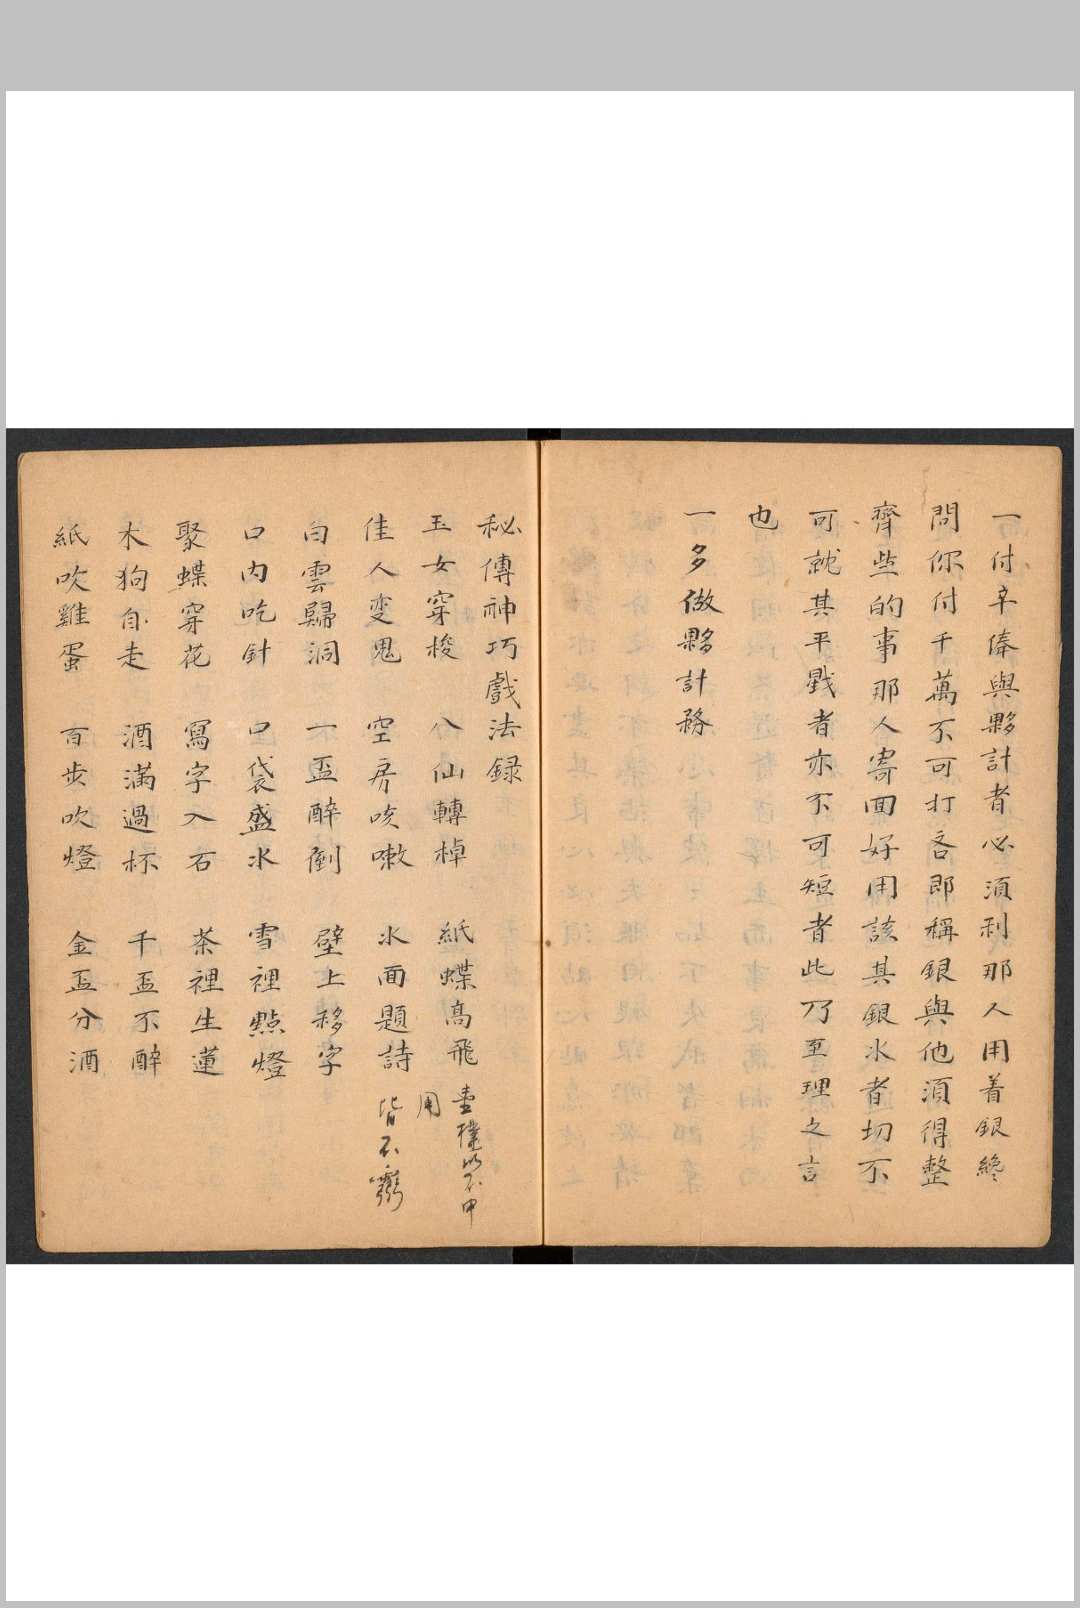 一付辛俸與夥計者必須利那人用着銀纔
問你付千萬不可打吝即稱銀與他須得整
齊些的事那人寄囬好用該其銀水者切不
可就其平戥者亦不可短者此乃至理之言
也
一多做夥計務
秘傳神巧戲法録
玉女穿梭 八仙轉棹 紙蝶高飛
用
佳人变鬼 空房咳嗽 水面題詩 皆不
白雲歸洞 一盃醉倒 壁上移字
口内吃針 口袋盛水 雪裡點燈
聚蝶穿花 寫字入石 茶裡生蓮
木狗自走 酒滿過杯 千盃不醉
紙吹雞蛋 百步吹燈 金盃分酒